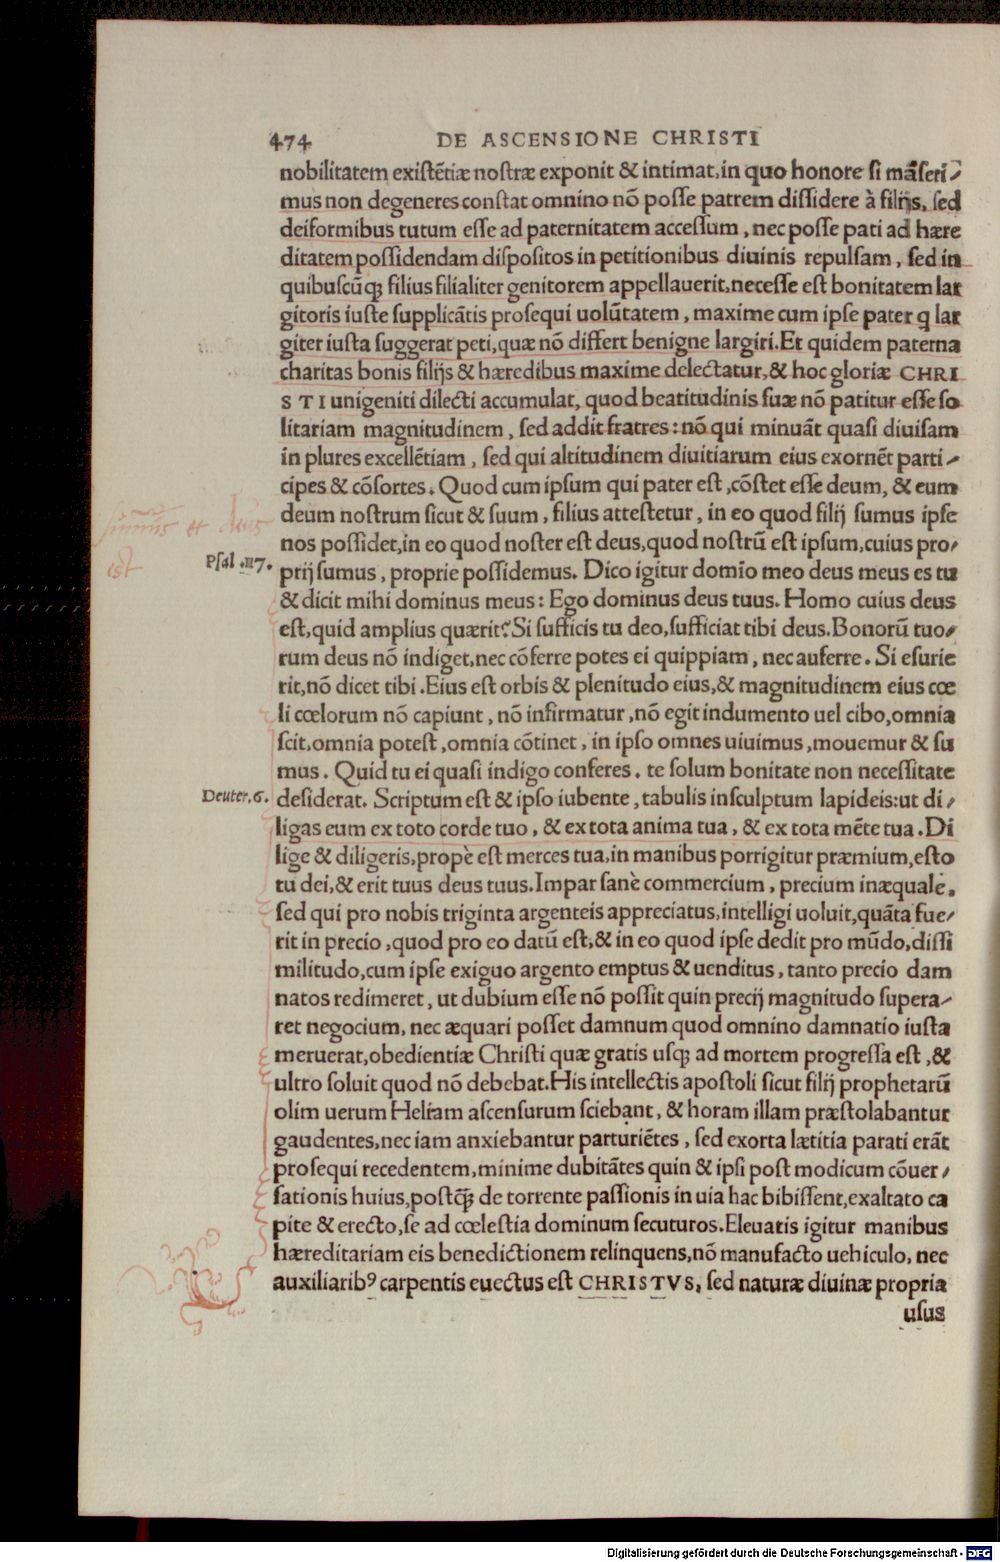 474 DE ASCENSIONE CHRISTI
nobilitatem existẽtiæ nostræ exponit & intimat, in quo honore si mãseri-
mus non degeneres constat omnino nõ posse patrem dissidere à filijs, sed
deiformibus tutum esse ad paternitatem accessum, nec posse pati ad hære
ditatem possidendam dispositos in petitionibus diuinis repulsam, sed in
quibuscũq; filius filialiter genitorem appellauerit, necesse est bonitatem lar
gitoris iuste supplicãtis prosequi uolũtatem, maxime cum ipse pater q lar
giter iusta suggerat peti, quæ nõ differt benigne largiri. Et quidem paterna
charitas bonis filijs & hæredibus maxime delectatur, & hoc gloriæ CHRI
STI unigeniti dilecti accumulat, quod beatitudinis suæ nõ patitur esse so
litariam magnitudinem, sed addit fratres: nõ qui minuãt quasi diuisam
in plures excellẽtiam, sed qui altitudinem diuitiarum eius exornẽt parti-
cipes & cõsortes. Quod cum ipsum qui pater est, cõstet esse deum, & eum
deum nostrum sicut & suum, filius attestetur, in eo quod filij sumus ipse
nos possidet, in eo quod noster est deus, quod nostrũ est ipsum, cuius pro-
sumus et deus
est
Psal. 117.
prij sumus, proprie possidemus. Dico igitur domïo meo deus meus es tu
& dicit mihi dominus meus: Ego dominus deus tuus. Homo cuius deus
est, quid amplius quærit? Si sufficis tu deo, sufficiat tibi deus. Bonorũ tuo-
rum deus nõ indiget, nec cõferre potes ei quippiam, nec auferre. Si esurie
rit, nõ dicet tibi. Eius est orbis & plenitudo eius, & magnitudinem eius cœ
li cœlorum nõ capiunt, nõ infirmatur, nõ eget indumento uel cibo, omnia
scit, omnia potest, omnia cõtinet, in ipso omnes uiuimus, mouemur & su
mus. Quid tu ei quasi indigo conferes. te solum bonitate non necessitate
Deuter. 6.
desiderat. Scriptum est & ipso iubente, tabulis insculptum lapideis: ut di-
ligas eum ex toto corde tuo, & ex tota anima tua, & ex tota mẽte tua. Di
lige & diligeris, propè est merces tua, in manibus porrigitur præmium, esto
tu dei, & erit tuus deus tuus. Impar sanè commercium, precium inæquale.
sed qui pro nobis triginta argenteis appreciatus, intelligi uoluit, quãta fue-
rit in precio, quod pro eo datũ est, & in eo quod ipse dedit pro mũdo, dissi
militudo, cum ipse exiguo argento emptus & uenditus, tanto precio dam
natos redimeret, ut dubium esse nõ possit quin precij magnitudo supera-
ret negocium, nec æquari posset damnum quod omnino damnatio iusta
meruerat, obedientiæ Christi quæ gratis usq; ad mortem progressa est, &
ultro soluit quod nõ debebat. His intellectis apostoli sicut filij prophetarũ
olim uerum Heliam ascensurum sciebant, & horam illam præstolabantur
gaudentes, nec iam anxiebantur parturiẽtes, sed exorta lætitia parati erãt
prosequi recedentem, minime dubitãtes quin & ipsi post modicum cõuer-
sationis huius, postq̃ de torrente passionis in uia hac bibissent, exaltato ca
pite & erecto, se ad cœlestia dominum secuturos. Eleuatis igitur manibus
hæreditariam eis benedictionem relinquens, nõ manufacto uehiculo, nec
auxiliarib⁹ carpentis euectus est CHRISTVS, sed naturæ diuinæ propria
usus
Digitalisierung gefördert durch die Deutsche Forschungsgemeinschaft - DFG